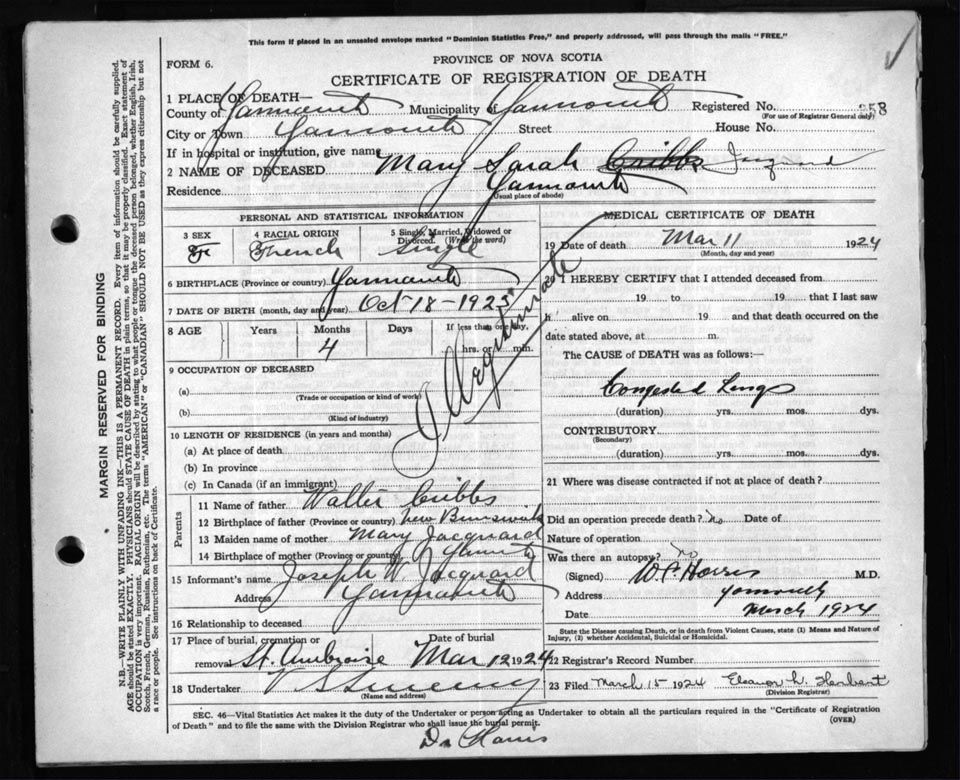 This form if placed in an unsealed envelope marked "Dominion Statistics Free," and properly addressed, will pass through the mails "FREE."
FORM 6.
PROVINCE OF NOVA SCOTIA
CERTIFICATE OF REGISTRATION OF DEATH
1 PLACE OF DEATH—
County of Yarmouth Municipality of Yarmouth Registered No. 258
(For use of Registrar General only)
City or Town Yarmouth Street House No.
If in hospital or institution, give name
2 NAME OF DECEASED Mary Sarah Cribbs
Residence Yarmouth
(Usual place of abode)
PERSONAL AND STATISTICAL INFORMATION
3 SEX F
4 RACIAL ORIGIN French
5 Single, Married, Widowed or Divorced. (Write the word) Single
6 BIRTHPLACE (Province or country) Yarmouth
7 DATE OF BIRTH (month, day and year) Oct 18 - 1923
8 AGE Years Months Days If less than one day
4 hrs. or min.
9 OCCUPATION OF DECEASED
(a)
(Trade or occupation or kind of work)
(b)
(Kind of industry)
10 LENGTH OF RESIDENCE (in years and months)
(a) At place of death
(b) In province
(c) In Canada (if an immigrant)
Illegitimate
Parents
11 Name of father Walter Cribbs
12 Birthplace of father (Province or country) New Brunswick
13 Maiden name of mother Mary Jacquard
14 Birthplace of mother (Province or country)
15 Informant's name Joseph W Jacquard
Address Yarmouth
16 Relationship to deceased
17 Place of burial, cremation or removal St. Ambroise Date of burial Mar 12 1924
18 Undertaker V S Sweeny
(Name and address)
MEDICAL CERTIFICATE OF DEATH
19 Date of death Mar 11 1924
(Month, day and year)
20 I HEREBY CERTIFY that I attended deceased from
19 to 19 that I last saw
h alive on 19 and that death occurred on the
date stated above, at m.
The CAUSE of DEATH was as follows:—
Congested Lungs
(duration) yrs. mos. dys.
CONTRIBUTORY
(Secondary)
(duration) yrs. mos. dys.
21 Where was disease contracted if not at place of death?
Did an operation precede death? no Date of
Nature of operation
Was there an autopsy? no
(Signed) Harris M.D.
Address Yarmouth
Date March 1924
State the Disease causing Death, or in death from Violent Causes, state (1) Means and Nature of
Injury, (2) whether Accidental, Suicidal or Homicidal.
22 Registrar's Record Number
23 Filed March 15 1924 Eleanor
(Division Registrar)
SEC. 46—Vital Statistics Act makes it the duty of the Undertaker or person acting as Undertaker to obtain all the particulars required in the "Certificate of Registration
of Death" and to file the same with the Division Registrar who shall issue the burial permit.
(OVER)
Dr Harris
MARGIN RESERVED FOR BINDING
N.B.—WRITE PLAINLY WITH UNFADING INK—THIS IS A PERMANENT RECORD. Every item of information should be carefully supplied.
AGE should be stated EXACTLY. PHYSICIANS should STATE CAUSE OF DEATH in plain terms, so that it may be properly classified. Exact statement of
OCCUPATION is very important. RACIAL ORIGIN will be described by stating to what people or tongue the deceased person belonged, whether English, Irish,
Scotch, French, German, Russian, Ruthenian, etc. The terms "AMERICAN" or "CANADIAN" SHOULD NOT BE USED as they express citizenship but not
a race or people. See instructions on back of Certificate.